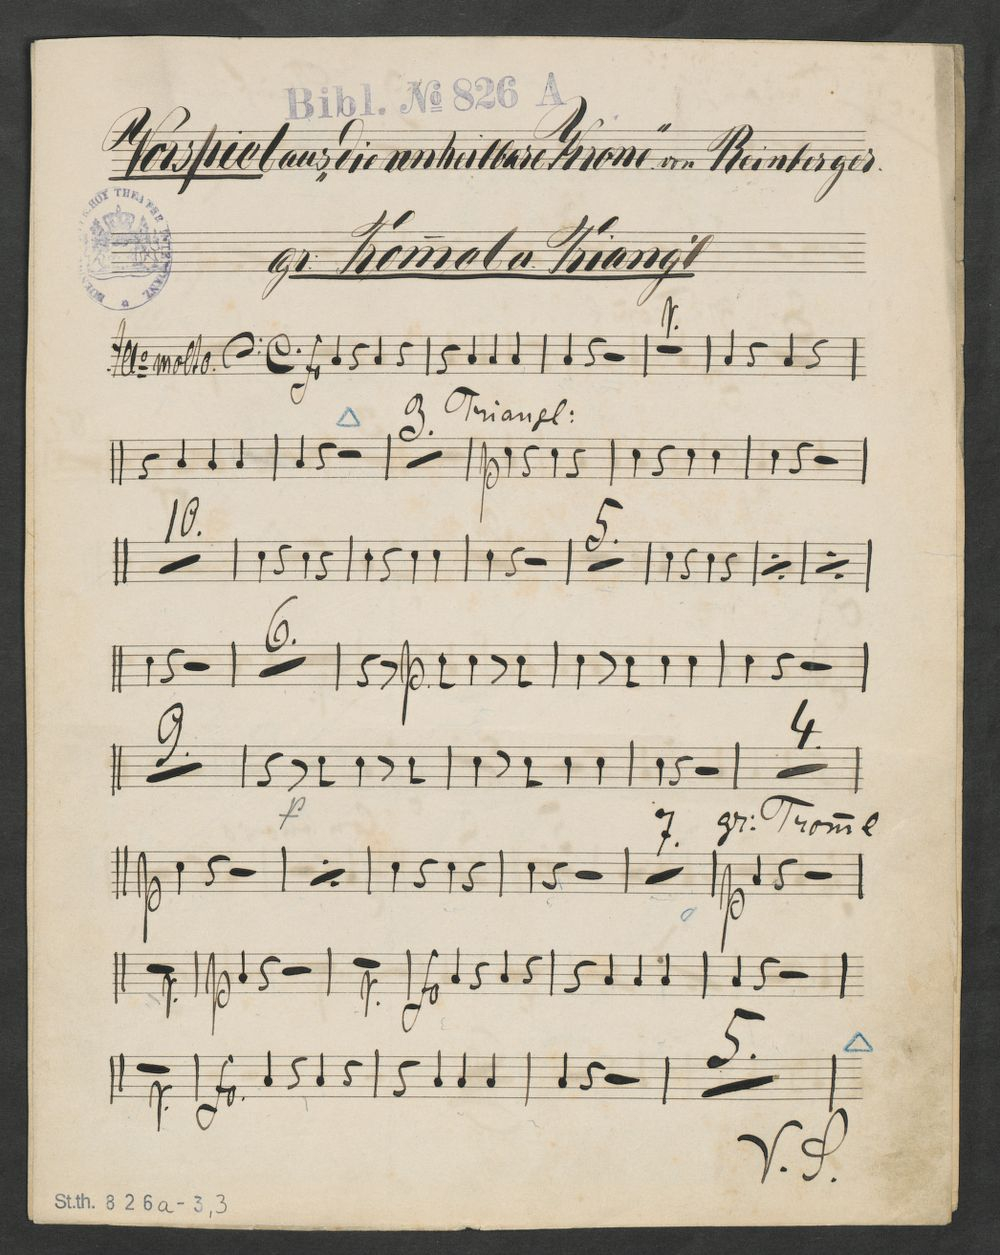 Bibl. № 826 A
Vorspiel aus „die unheilbare Krone" von Reinberger.
gr: Trom̅el u. Triang'l
All⁰ molto. fo 1.
3. Triangl:
p
10. 5.
6.
p.
9. 4.
p
7. gr: Trom̅l
p p
1. p 1. fo
1. fo. 5.
V. S.
St.th. 826a-3,3